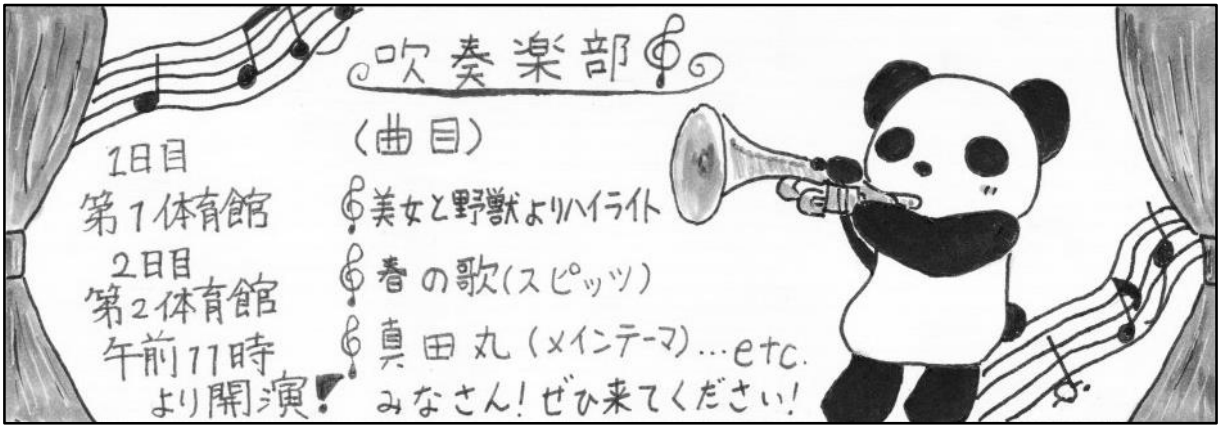 吹奏楽部
1日目
第1体育館
2日目
第2体育館
午前11時
より開演!
(曲目)
美女と野獣よりハイライト
春の歌(スピッツ)
真田丸(メインテーマ)...etc.
みなさん!ぜひ来てください!